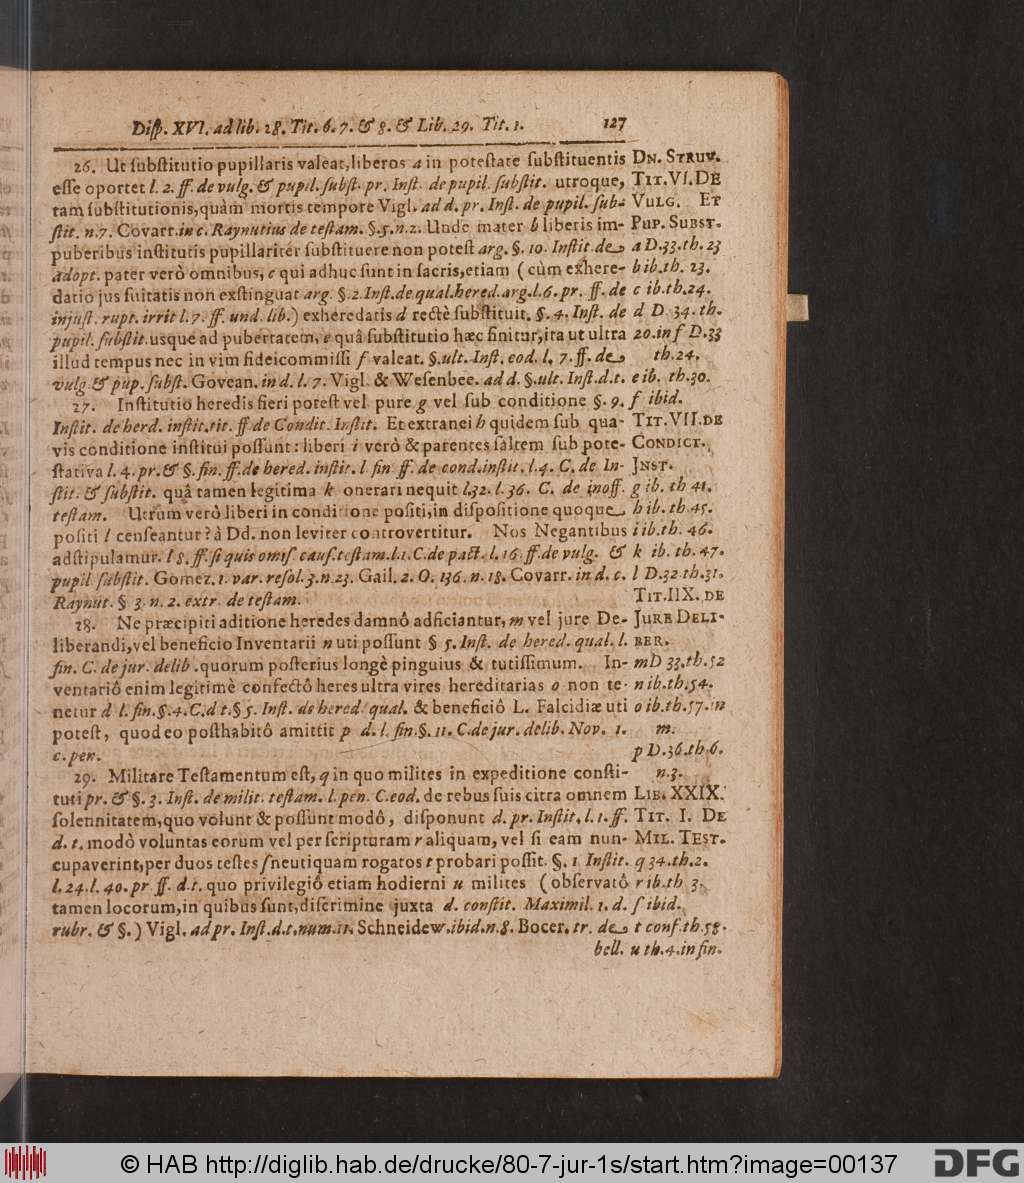 Disp. XVI. ad lib. 28. Tit. 6. 7. & 8. & Lib. 29. Tit. 1. 127
26. Ut ſubſtitutio pupillaris valeat, liberos a in poteſtate ſubſtituentis
eſſe oportet l. 2. ff. de vulg. & pupil. ſubſt. pr. Inſt. de pupil. ſubſtit. utroque,
tam ſubſtitutionis, quàm mortis tempore Vigl. ad d. pr. Inſt. de pupil. ſub-
ſtit. n. 7. Covarr. in c. Raynutius de teſtam. §. 5. n. 2. Unde mater b liberis im-
puberibus inſtitutis pupillaritér ſubſtituere non poteſt arg. §. 10. Inſtit. de
adopt. pater verò omnibus, c qui adhuc ſunt in ſacris, etiam (cùm exhere-
datio jus ſuitatis non exſtinguat arg. §. 2. Inſt. de qual. hered. arg. l. 6. pr. ff. de
injuſt. rupt. irrit l. 7. ff. und. lib.) exheredatis d rectè ſubſtituit. §. 4. Inſt. de
pupil. ſubſtit. usque ad pubertatem, e quâ ſubſtitutio hæc finitur, ita ut ultra
illud tempus nec in vim fideicommiſſi f valeat. §. ult. Inſt. eod. l. 7. ff. de
vulg. & pup. ſubſt. Govean. in d. l. 7. Vigl. & Weſenbec. ad d. §. ult. Inſt. d. t.
27. Inſtitutio heredis fieri poteſt vel pure g vel ſub conditione §. 9.
Inſtit. de herd. inſtit. tit. ff. de Condit. Inſtit. Et extranei h quidem ſub qua-
vis conditione inſtitui poſſunt: liberi i verò & parentes ſaltem ſub pote-
ſtativa l. 4. pr. & §. fin. ff. de hered. inſtit. l. fin ff. de cond. inſtit. l. 4. C. de In-
ſtit. & ſubſtit. quâ tamen legitima k onerari nequit l. 32. l. 36. C. de inoff.
teſtam. Utrum verò liberi in conditione poſiti, in diſpoſitione quoque
poſiti l cenſeantur? à Dd. non leviter controvertitur. Nos Negantibus
adſtipulamur. l 8. ff. ſi quis omiſ. cauſ. teſtam. l. 1. C. de pact. l. 16. ff. de vulg. &
pupil ſubſtit. Gomez. 1. var. reſol. 3. n. 23. Gail. 2. O. 136. n. 18. Covarr. in d. c.
Raynut. § 3. n. 2. extr. de teſtam.
28. Ne præcipiti aditione heredes damnô adficiantur, m vel jure De-
liberandi, vel beneficio Inventarii n uti poſſunt § 5. Inſt. de hered. qual. l.
fin. C. de jur. delib. quorum poſterius longè pinguius & tutiſſimum. In-
ventariô enim legitimè confectô heres ultra vires hereditarias o non te-
netur d l. fin. §. 4. C. d t. § 5. Inſt. de hered qual. & beneficiô L. Falcidiæ uti
poteſt, quod eo poſthabitô amittit p d. l. fin. §. 11. C. de jur. delib. Nov. 1.
c. pen.
29. Militare Teſtamentum eſt, q in quo milites in expeditione conſti-
tuti pr. & §. 3. Inſt. de milit. teſtam. l. pen. C. eod. de rebus ſuis citra omnem
ſolennitatem, quo volunt & poſſunt modô, diſponunt d. pr. Inſtit. l. 1. ff.
d. t. modò voluntas eorum vel per ſcripturam r aliquam, vel ſi eam nun-
cupaverint, per duos teſtes ſ neutiquam rogatos t probari poſſit. §. 1 Inſtit.
l. 24. l. 40. pr ff. d. t. quo privilegiô etiam hodierni u milites (obſervatô
tamen locorum, in quibus ſunt, diſcrimine juxta d. conſtit. Maximil. 1. d.
rubr. & §.) Vigl. ad pr. Inſt. d. t. num. 11. Schneidew. ibid. n. 8. Bocer. tr. de
bell.
DN. STRUV.
TIT. VI. DE
VULG. ET
PUP. SUBST.
a D. 33. th. 23
b ib. th. 23.
c ib. th. 24.
d D. 34. th.
20. in f D. 33
th. 24.
e ib. th. 30.
f ibid.
TIT. VII. DE
CONDICT.
JNST.
g ib. th 41.
h ib. th. 45.
i ib. th. 46.
k ib. th. 47.
l D. 32 th. 31.
TIT. IIX. DE
JURE DELI-
BER.
m D 33. th. 52
n ib. th. 54.
o ib. th. 57. in
m.
p D. 36. th. 6.
n. 3.
LIB. XXIX.
TIT. I. DE
MIL. TEST.
q 34. th. 2.
r ib. th 3.
ſ ibid.
t conf. th. 58.
u th. 4. in fin.
© HAB http://diglib.hab.de/drucke/80-7-jur-1s/start.htm?image=00137
DFG